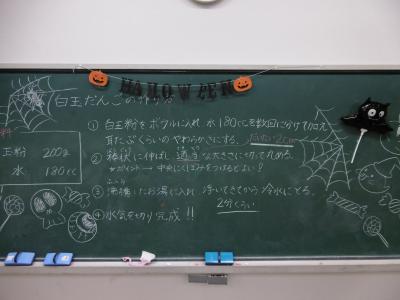 HALLOWEEN
白玉だんごの作り方
材料
白玉粉 200g
水 180cc
① 白玉粉をボウルに入れ、水180ccを数回に分けて加え
耳たぶくらいのやわらかさにする。
② 棒状に伸ばし、適当な大きさに切って丸める。
☆ポイント→中央にくぼみをつけるとよい!
③ 沸騰したお湯に入れ、浮いてきてから冷水にとる。
2分くらい
④ 水気を切り完成!!